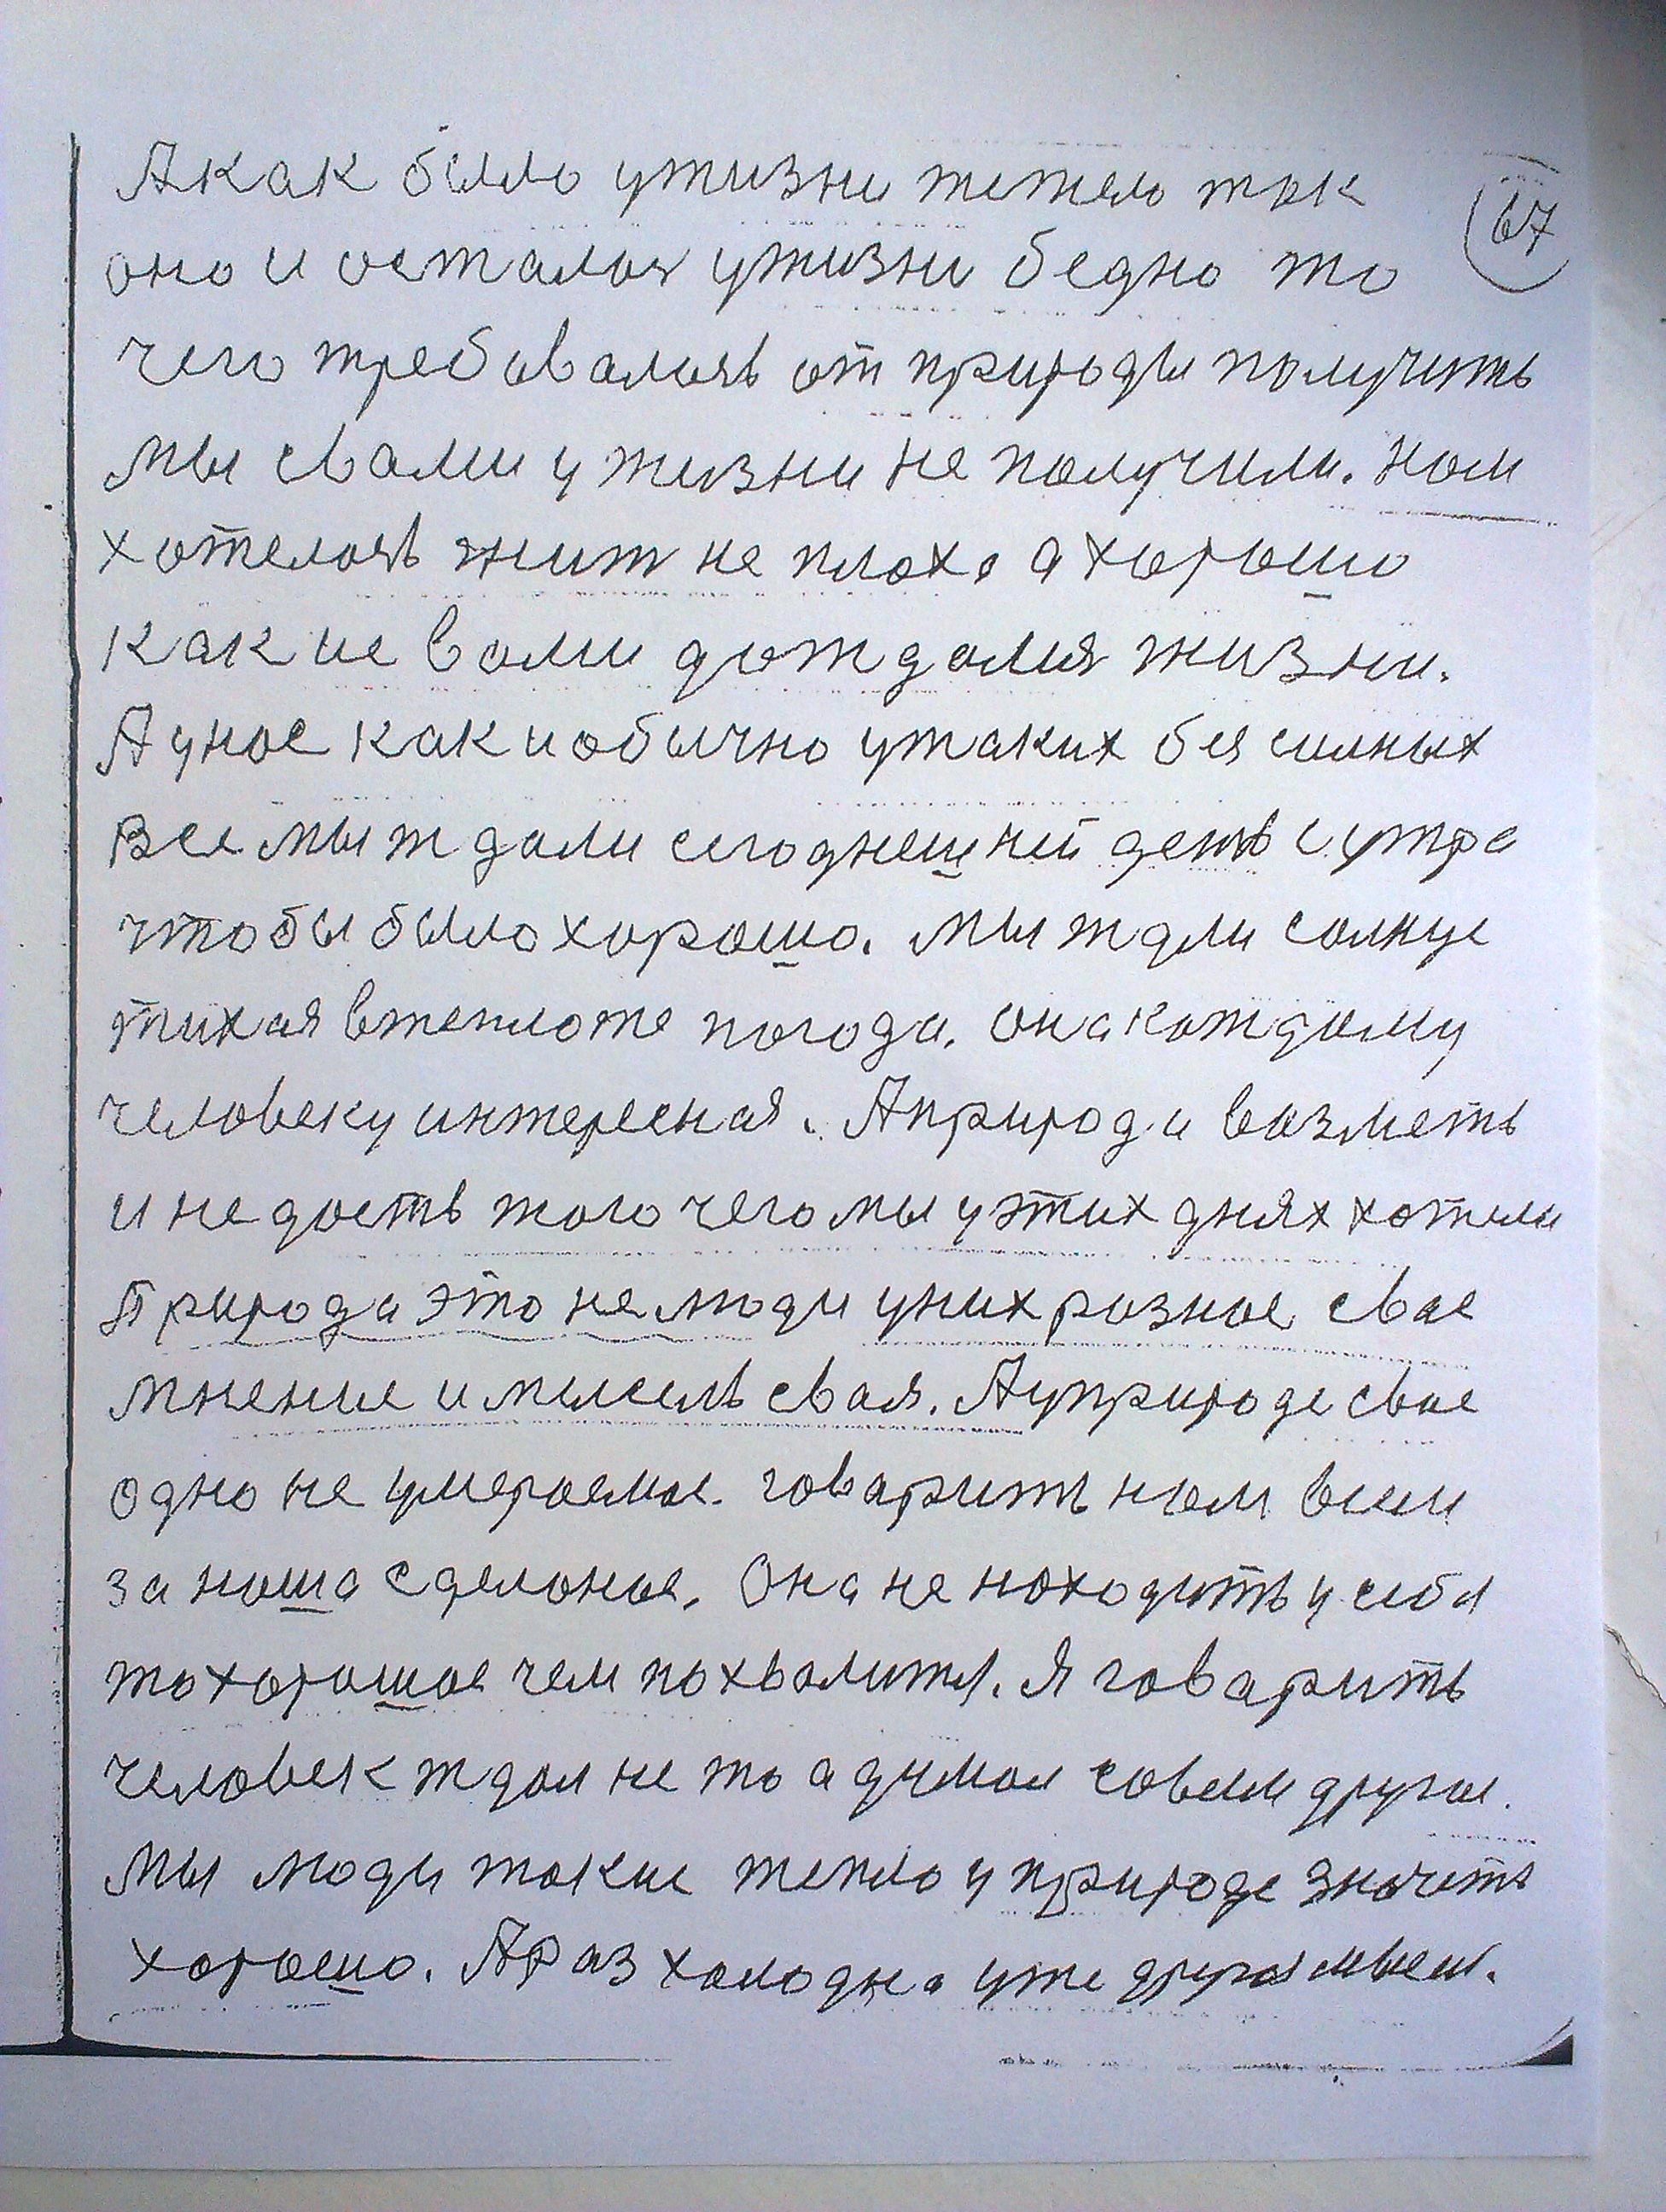 А как было у жизни тежело так
67
оно и осталося у жизни бедно то
чего требовалось от природы получить
мы с вами у жизни не получили. нам
хотелось жит не плохо а хорошо
как не вами дождалися жизни.
А у нас как и обычно у таких бессилных
все мы ждали сегоднешний день с утра
чтобы было хорошо. Мы ждли солнце
тихая в теплоте погода. она каждому
человеку интересная. А природа возметь
и не дасть того чего мы у этих днях хотели
Природа это не люди у них разное свае
мнение и мысель своя. А у природе свое
одно не умераемое. говарить нам всем
за наша сделоное. Она не находить у себя
то хорошое чем похвалится. Я говарить
человек ждал не то а думал совсем другое.
Мы люди такие тепло у природе значеть
хорошо. А раз холодно уже другая